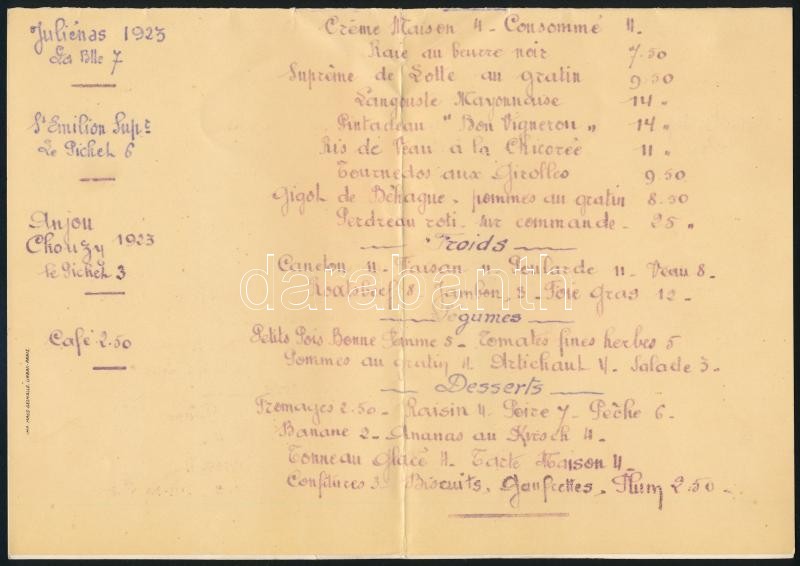 Juliénas 1923
La Blle 7
St Emilion Supr
Le Pichet 6
Anjou
Chouzy 1923
le Pichet 3
Café 2.50
Crème Maison 4 - Consommé 4.
Raie au beurre noir 7.50
Suprême de Lotte au gratin 9.50
Langouste Mayonnaise 14 "
Pintadeau "Bon Vigneron" 14 "
Ris de Veau à la Chicorée 11 "
Tournedos aux Girolles 9.50
Gigot de Béhague - pommes au gratin 8.50
Perdreau roti - sur commande - 25 "
Froids
Caneton 11 - Faisan 11 Poularde 11 - Veau 8 -
Roastbeef 8 Jambon 8 - Foie Gras 12 -
Légumes
Petits Pois Bonne Femme 5 - Tomates fines herbes 5
Pommes au gratin 4 Artichaut 4 - Salade 3 -
Desserts
Fromages 2.50 - Raisin 4 Poire 7 - Pêche 6 -
Banane 2 - Ananas au Kirsch 4 -
Tonneau Glacé 4 - Tarte Maison 4 -
Confitures 3 - Biscuits, Gaufrettes, Plum 2.50 -
darabanth